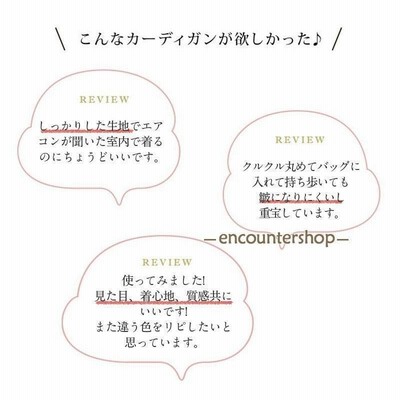 こんなカーディガンが欲しかった♪
REVIEW
しっかりした生地でエア
コンが聞いた室内で着る
のにちょうどいいです。
REVIEW
クルクル丸めてバッグに
入れて持ち歩いても
皺になりにくいし
重宝しています。
—encountershop—
REVIEW
使ってみました!
見た目、着心地、質感共に
いいです!
また違う色をリピしたいと
思っています。